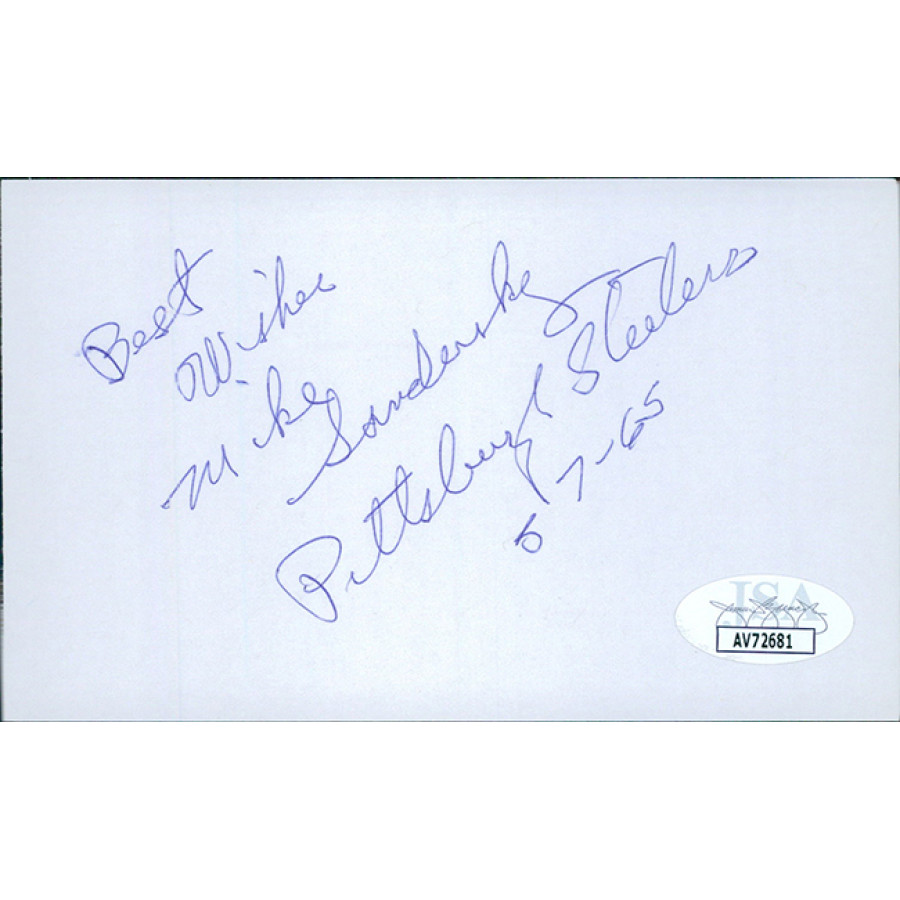 Best
Wishes
Mike Sandusky
Pittsburgh Steelers
57-65
JSA
AV72681